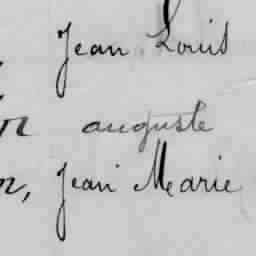 Jean Louis
auguste
Jean Marie